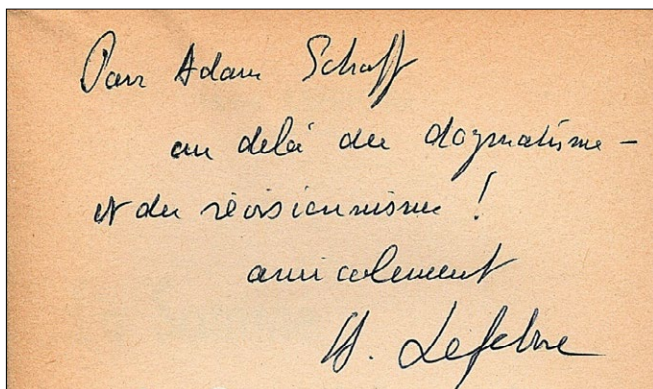 Pour Adam Schaff
au delà du dogmatisme –
et du révisionnisme !
amicalement
H. Lefebvre